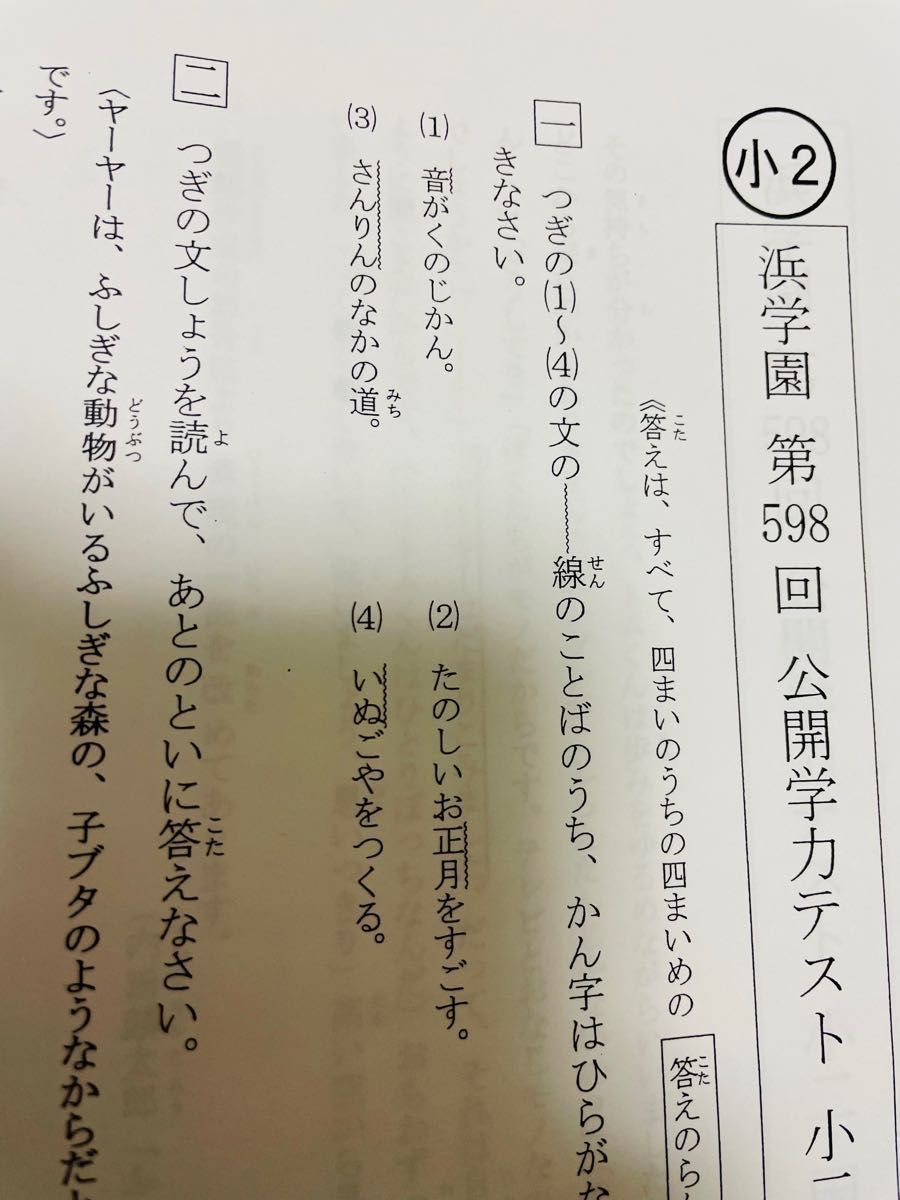 小2
浜学園 第598回 公開学力テスト 小
《答えは、すべて、四まいのうちの四まいめの 答えのら
一 つぎの(1)～(4)の文の線のことばのうち、かん字はひらがな
きなさい。
(1) 音がくのじかん。
(2) たのしいお正月をすごす。
(3) さんりんのなかの道。
(4) いぬごやをつくる。
二 つぎの文しょうを読んで、あとのといに答えなさい。
〈ヤーヤーは、ふしぎな動物がいるふしぎな森の、子ブタのようなからだ
です。〉